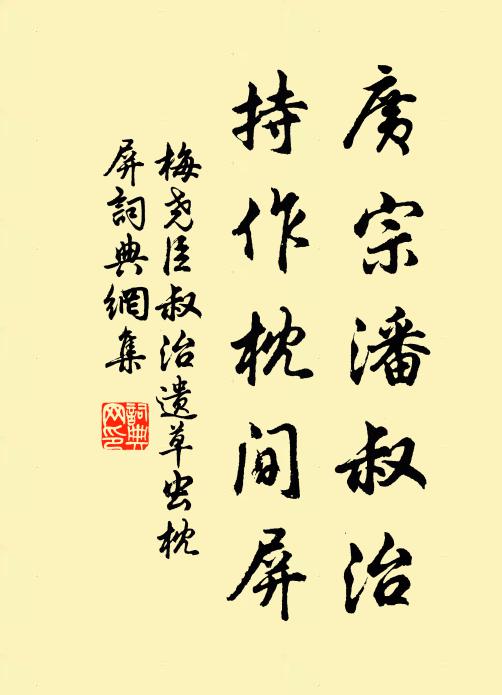 廣宗潘叔治
持作枕間屏
梅尧臣叔治遗草虫枕
屏詞典網集
詞典
网印